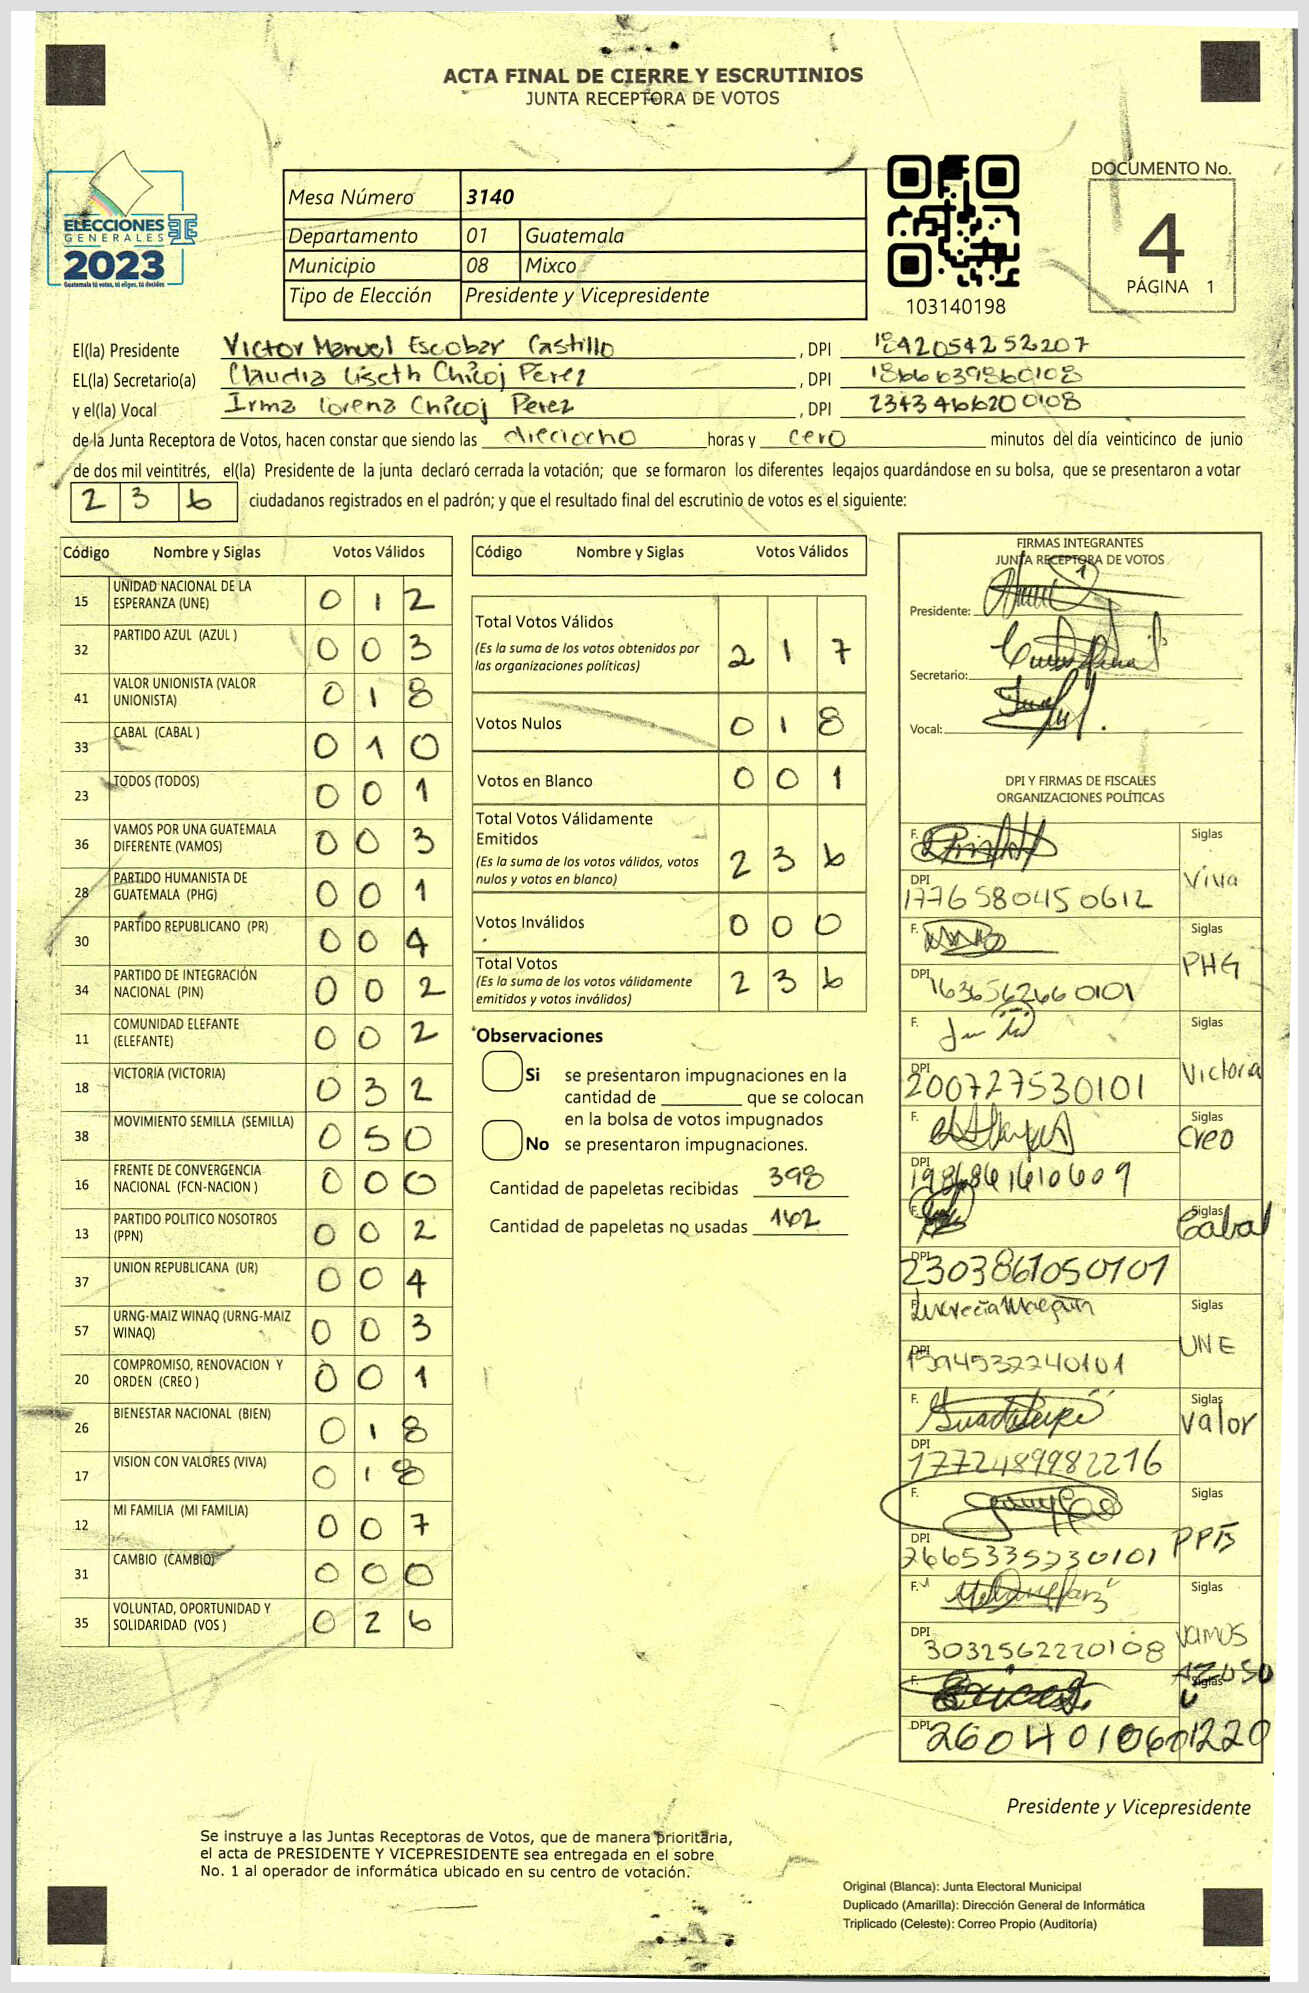 ACTA FINAL DE CIERRE Y ESCRUTINIOS
JUNTA RECEPTORA DE VOTOS
ELECCIONES
GENERALES
2023
Guatemala tú votas, tú eliges, tú decides
Mesa Número 3140
Departamento 01 Guatemala
Municipio 08 Mixco
Tipo de Elección Presidente y Vicepresidente
103140198
DOCUMENTO No.
4
PÁGINA 1
El(la) Presidente Victor Manuel Escobar Castillo , DPI 1842054252207
EL(la) Secretario(a) Claudia Liseth Chicoj Pérez , DPI 1866639860108
y el(la) Vocal Irma Lorena Chicoj Perez , DPI 2343466200108
de la Junta Receptora de Votos, hacen constar que siendo las dieciocho horas y cero minutos del día veinticinco de junio
de dos mil veintitrés, el(la) Presidente de la junta declaró cerrada la votación; que se formaron los diferentes legajos guardándose en su bolsa, que se presentaron a votar
2 3 6 ciudadanos registrados en el padrón; y que el resultado final del escrutinio de votos es el siguiente:
Código Nombre y Siglas Votos Válidos
15 UNIDAD NACIONAL DE LA ESPERANZA (UNE) 0 1 2
32 PARTIDO AZUL (AZUL ) 0 0 3
41 VALOR UNIONISTA (VALOR UNIONISTA) 0 1 8
33 CABAL (CABAL ) 0 1 0
23 TODOS (TODOS) 0 0 1
36 VAMOS POR UNA GUATEMALA DIFERENTE (VAMOS) 0 0 3
28 PARTIDO HUMANISTA DE GUATEMALA (PHG) 0 0 1
30 PARTIDO REPUBLICANO (PR) 0 0 4
34 PARTIDO DE INTEGRACIÓN NACIONAL (PIN) 0 0 2
11 COMUNIDAD ELEFANTE (ELEFANTE) 0 0 2
18 VICTORIA (VICTORIA) 0 3 2
38 MOVIMIENTO SEMILLA (SEMILLA) 0 5 0
16 FRENTE DE CONVERGENCIA NACIONAL (FCN-NACION ) 0 0 0
13 PARTIDO POLITICO NOSOTROS (PPN) 0 0 2
37 UNION REPUBLICANA (UR) 0 0 4
57 URNG-MAIZ WINAQ (URNG-MAIZ WINAQ) 0 0 3
20 COMPROMISO, RENOVACION Y ORDEN (CREO ) 0 0 1
26 BIENESTAR NACIONAL (BIEN) 0 1 8
17 VISION CON VALORES (VIVA) 0 1 8
12 MI FAMILIA (MI FAMILIA) 0 0 7
31 CAMBIO (CAMBIO) 0 0 0
35 VOLUNTAD, OPORTUNIDAD Y SOLIDARIDAD (VOS ) 0 2 6
Código Nombre y Siglas Votos Válidos
Total Votos Válidos
(Es la suma de los votos obtenidos por
las organizaciones políticas) 2 1 7
Votos Nulos 0 1 8
Votos en Blanco 0 0 1
Total Votos Válidamente
Emitidos
(Es la suma de los votos válidos, votos
nulos y votos en blanco) 2 3 6
Votos Inválidos 0 0 0
Total Votos
(Es la suma de los votos válidamente
emitidos y votos inválidos) 2 3 6
Observaciones
Si se presentaron impugnaciones en la
cantidad de ________ que se colocan
en la bolsa de votos impugnados
No se presentaron impugnaciones.
Cantidad de papeletas recibidas 398
Cantidad de papeletas no usadas 162
FIRMAS INTEGRANTES
JUNTA RECEPTORA DE VOTOS
Presidente:
Secretario:
Vocal:
DPI Y FIRMAS DE FISCALES
ORGANIZACIONES POLÍTICAS
F. Siglas
Viva
DPI 1776580450612
F. Siglas
PHG
DPI 1636562660101
F. Siglas
Victoria
DPI 200727530101
F. Siglas
Creo
DPI 1986861610609
F. Siglas
Cabal
DPI 2303861050101
F. Siglas
UNE
DPI 1594532240101
F. Siglas
Valor
DPI 1772489982216
F. Siglas
DPI 2665335230101
F. Siglas
Vamos
DPI 3032562220108
F. Siglas
DPI 2604010601220
Presidente y Vicepresidente
Se instruye a las Juntas Receptoras de Votos, que de manera prioritaria,
el acta de PRESIDENTE Y VICEPRESIDENTE sea entregada en el sobre
No. 1 al operador de informática ubicado en su centro de votación.
Original (Blanca): Junta Electoral Municipal
Duplicado (Amarilla): Dirección General de Informática
Triplicado (Celeste): Correo Propio (Auditoría)